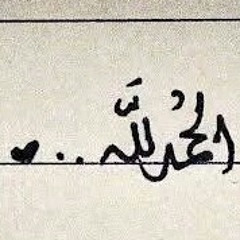 الحمُد للَّه .. ♥